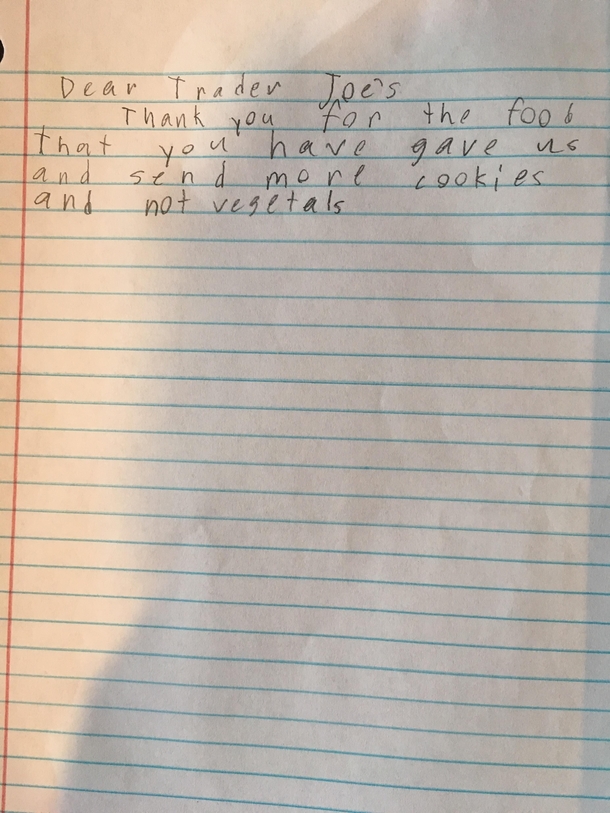 Dear Trader Joe's
Thank you for the foob
that you have gave us
and send more cookies
and not vegetals